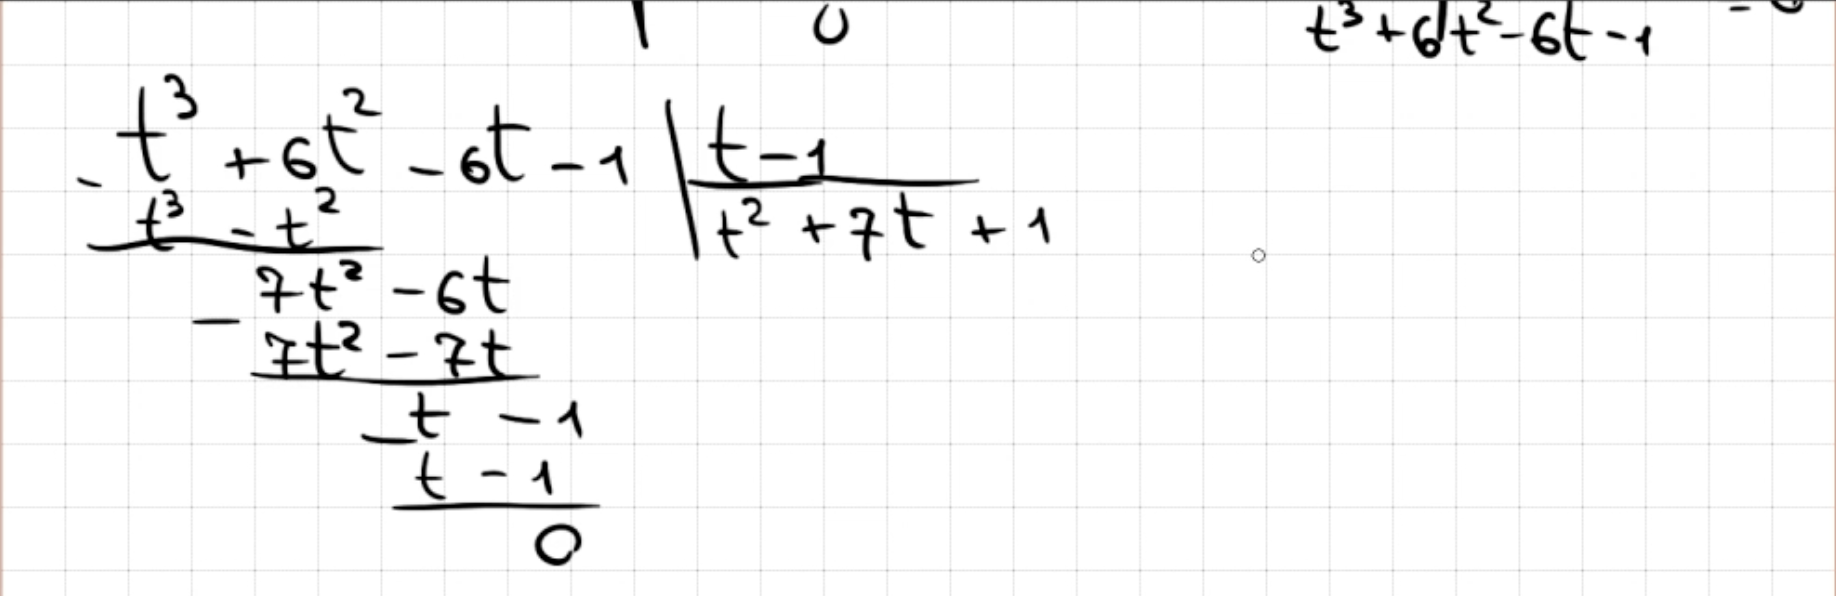 0
t³ + 6t² - 6t - 1
- t³ + 6t² - 6t - 1 | t - 1
t³ - t²
t² + 7t + 1
- 7t² - 6t
7t² - 7t
- t - 1
t - 1
0